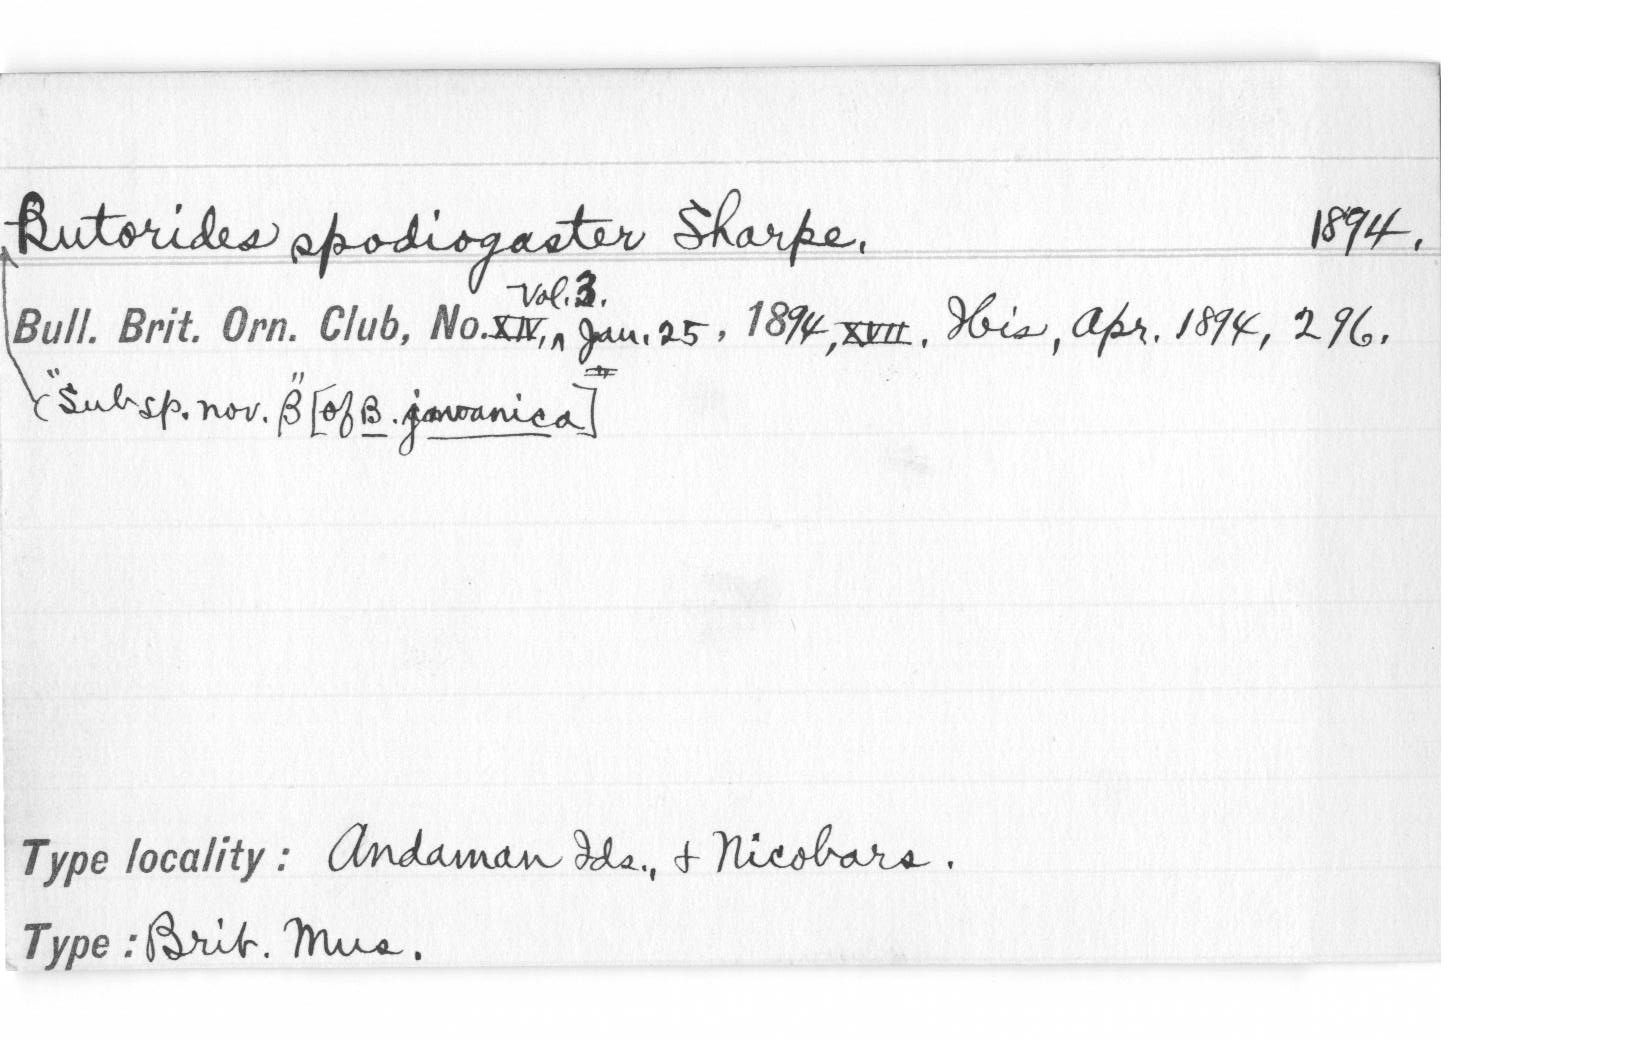 Butorides spodiogaster Sharpe. 1894.
Vol. 3.
Bull. Brit. Orn. Club, No. XIV, ^ Jan. 25, 1894, XVII. Ibis, Apr. 1894, 296.
("Subsp. nov. β" [of B. javanica]
Type locality: Andaman Ids., & Nicobars.
Type: Brit. Mus.